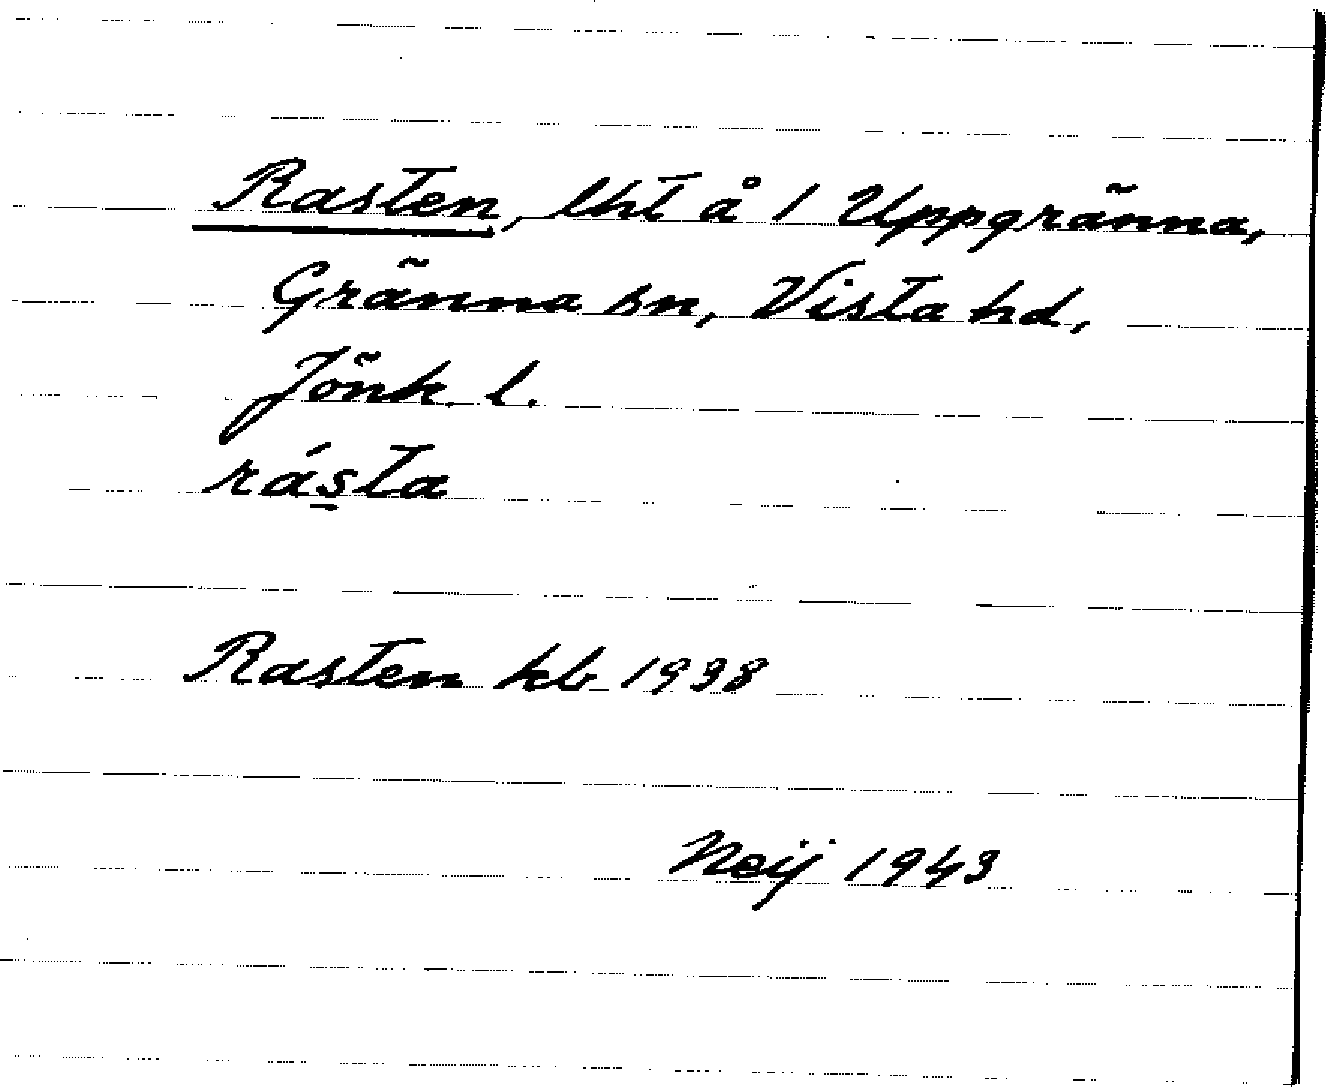 Rasten, lht å 1 Uppgränna,
Gränna sn, Vista hd,
Jönk. l.
rás̲ta
Rasten kb 1938
Neij 1943